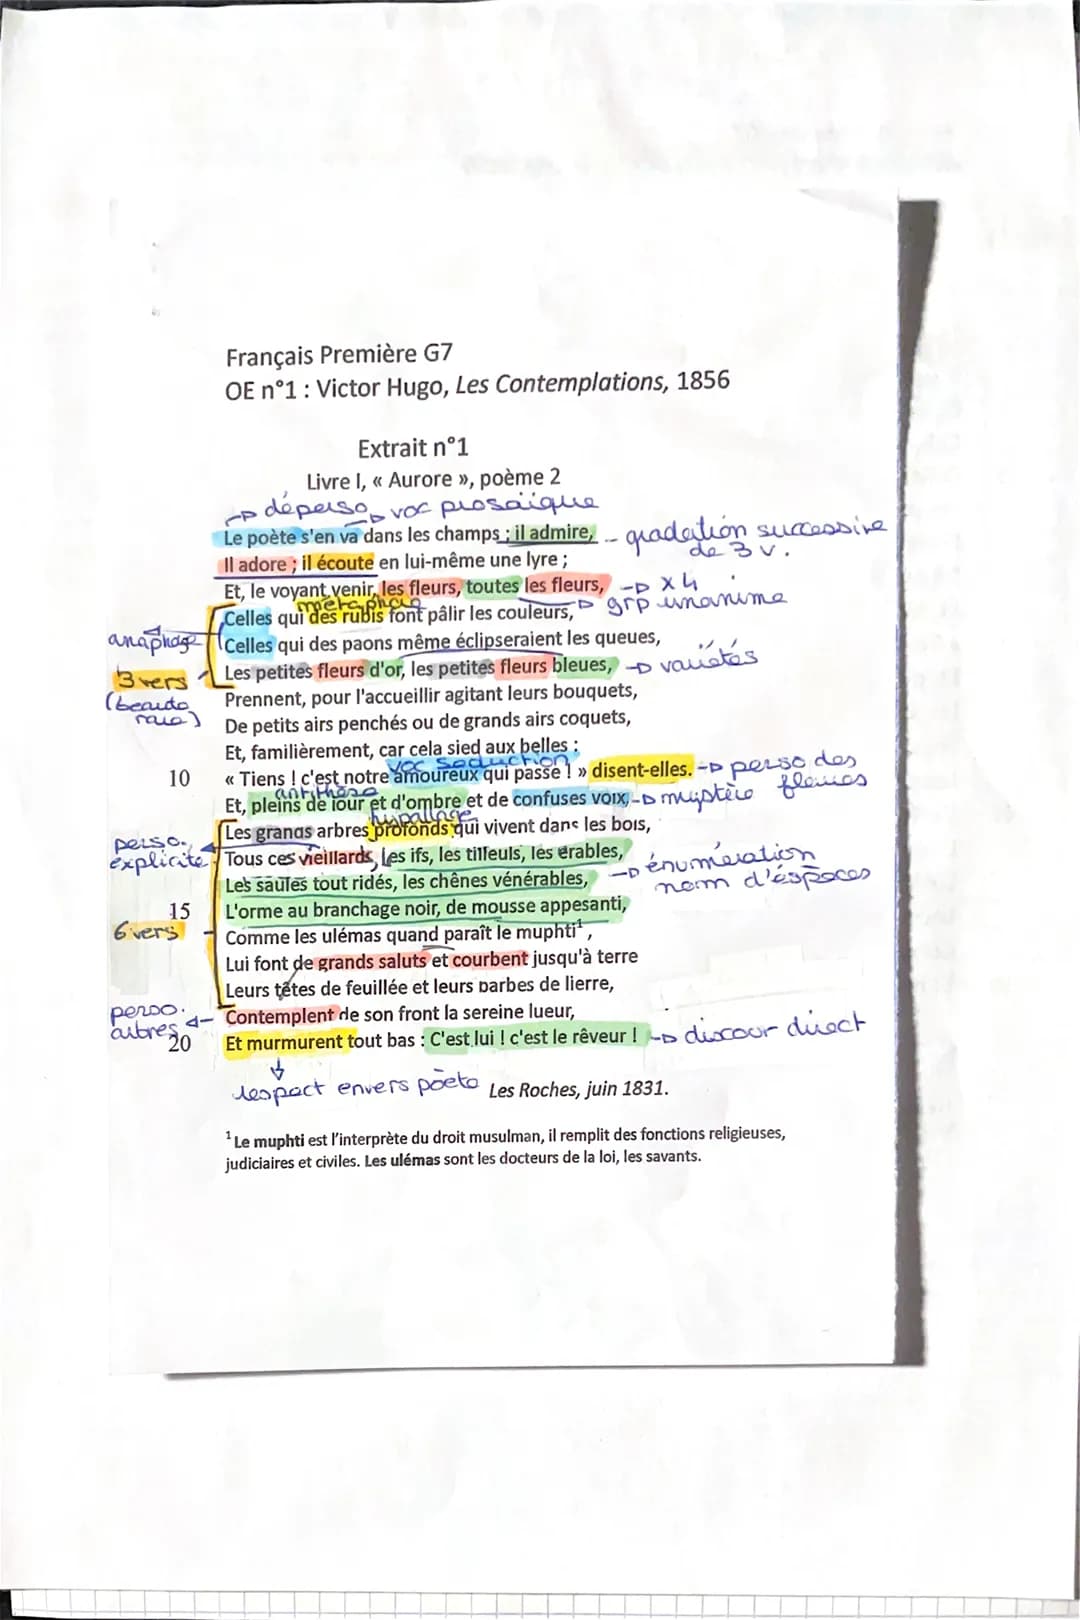 Français Première G7
OE n°1 : Victor Hugo, Les Contemplations, 1856
Extrait n°1
Livre I, « Aurore », poème 2
→ déperso → voc prosaïque
Le poète s'en va dans les champs ; il admire, → gradation successive de 3 v.
Il adore ; il écoute en lui-même une lyre ;
Et, le voyant venir, les fleurs, toutes les fleurs, → x4
métaphore → grp unanime
Celles qui des rubis font pâlir les couleurs,
anaphore Celles qui des paons même éclipseraient les queues,
3 vers Les petites fleurs d'or, les petites fleurs bleues, → variétés
(beauté rare) Prennent, pour l'accueillir agitant leurs bouquets,
De petits airs penchés ou de grands airs coquets,
Et, familièrement, car cela sied aux belles :
voc séduction
10 « Tiens ! c'est notre amoureux qui passe ! » disent-elles. → perso des fleurs
antithèse
Et, pleins de jour et d'ombre et de confuses voix, → mystère
hypallage
Les grands arbres profonds qui vivent dans les bois,
perso. explicite Tous ces vieillards, les ifs, les tilleuls, les érables, → énumération
Les saules tout ridés, les chênes vénérables, nom d'éspaces
15 L'orme au branchage noir, de mousse appesanti,
6 vers Comme les ulémas quand paraît le muphti¹,
Lui font de grands saluts et courbent jusqu'à terre
Leurs têtes de feuillée et leurs barbes de lierre,
perso. arbres ← Contemplent de son front la sereine lueur,
20 Et murmurent tout bas : C'est lui ! c'est le rêveur ! → discour direct
↓
respect envers poète
Les Roches, juin 1831.
¹ Le muphti est l'interprète du droit musulman, il remplit des fonctions religieuses,
judiciaires et civiles. Les ulémas sont les docteurs de la loi, les savants.